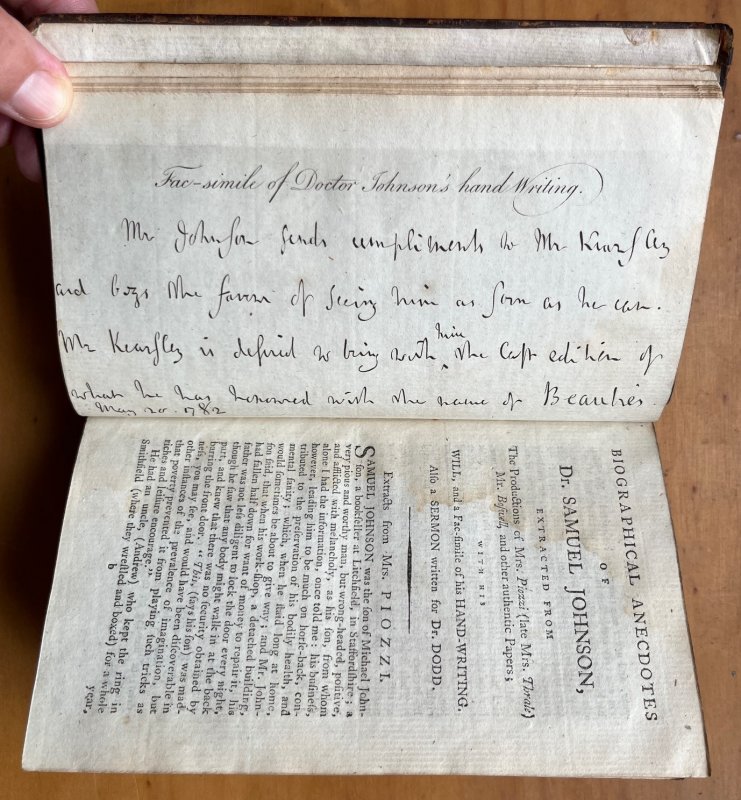 Fac-simile of Doctor Johnson's hand Writing.
Mr Johnson sends compliments to Mr Kearsley
and begs the favour of seeing him as soon as he can.
Mr Kearsley is desired to bring with him the last edition of
what he has honoured with the name of Beauties.
May 20. 1782
BIOGRAPHICAL ANECDOTES
OF
Dr. SAMUEL JOHNSON,
EXTRACTED FROM
The Productions of Mrs. Piozzi (late Mrs. Thrale)
Mr. Boſwell, and other authentic Papers;
WITH HIS
WILL, and a Fac-ſimile of his HAND-WRITING.
Alſo a SERMON written for Dr. DODD.
Extracts from Mrs. PIOZZI.
SAMUEL JOHNSON was the ſon of Michael John-
ſon, a bookſeller at Litchfield, in Staffordſhire; a
very pious and worthy man, but wrong-headed, poſitive,
and afflicted with melancholy, as his ſon, from whom
alone I had the information, once told me: his buſineſs,
however, leading him to be much on horſe-back, con-
tributed to the preſervation of his bodily health, and
mental ſanity; which, when he ſtaid long at home,
would ſometimes be about to give way; and Mr. John-
ſon ſaid, that when his work-ſhop, a detached building,
had fallen half down for want of money to repair it, his
father was not leſs diligent to lock the door every night,
though he ſaw that any body might walk in at the back
part, and knew that there was no ſecurity obtained by
barring the front door. "This, (ſays his ſon) was mad-
neſs, you may ſee, and would have been diſcoverable in
other inſtances of the prevalence of imagination, but
that poverty prevented it from playing ſuch tricks as
riches and leiſure encourage."
He had an uncle, (Andrew) who kept the ring in
Smithfield (where they wreſtled and boxed) for a whole
b year,